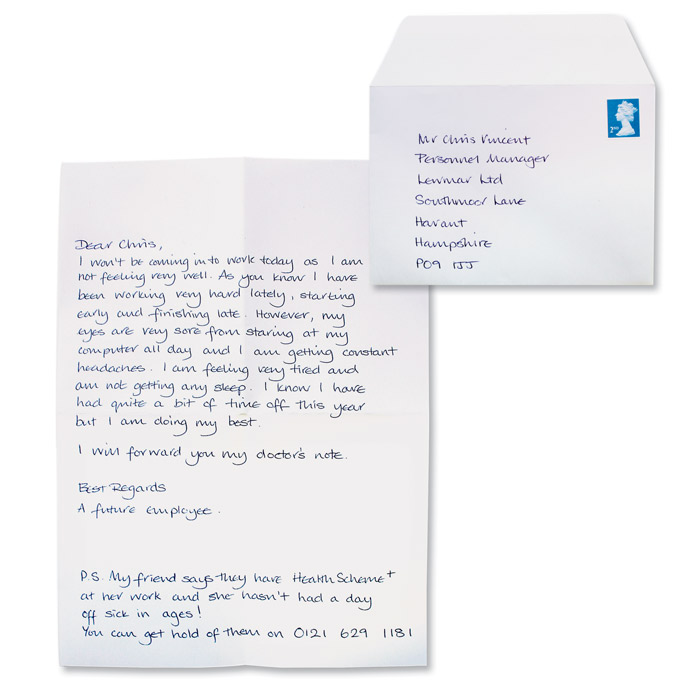 Mr Chris Vincent
Personnel Manager
Lewmar Ltd
Southmoor Lane
Havant
Hampshire
PO9 1JJ
2ND
Dear Chris,
I won't be coming in to work today as I am
not feeling very well. As you know I have
been working very hard lately, starting
early and finishing late. However, my
eyes are very sore from staring at my
computer all day and I am getting constant
headaches. I am feeling very tired and
am not getting any sleep. I know I have
had quite a bit of time off this year
but I am doing my best.
I will forward you my doctor's note.
Best Regards
A future employee.
P.S. My friend says they have Health Scheme+
at her work and she hasn't had a day
off sick in ages!
You can get hold of them on 0121 629 1181